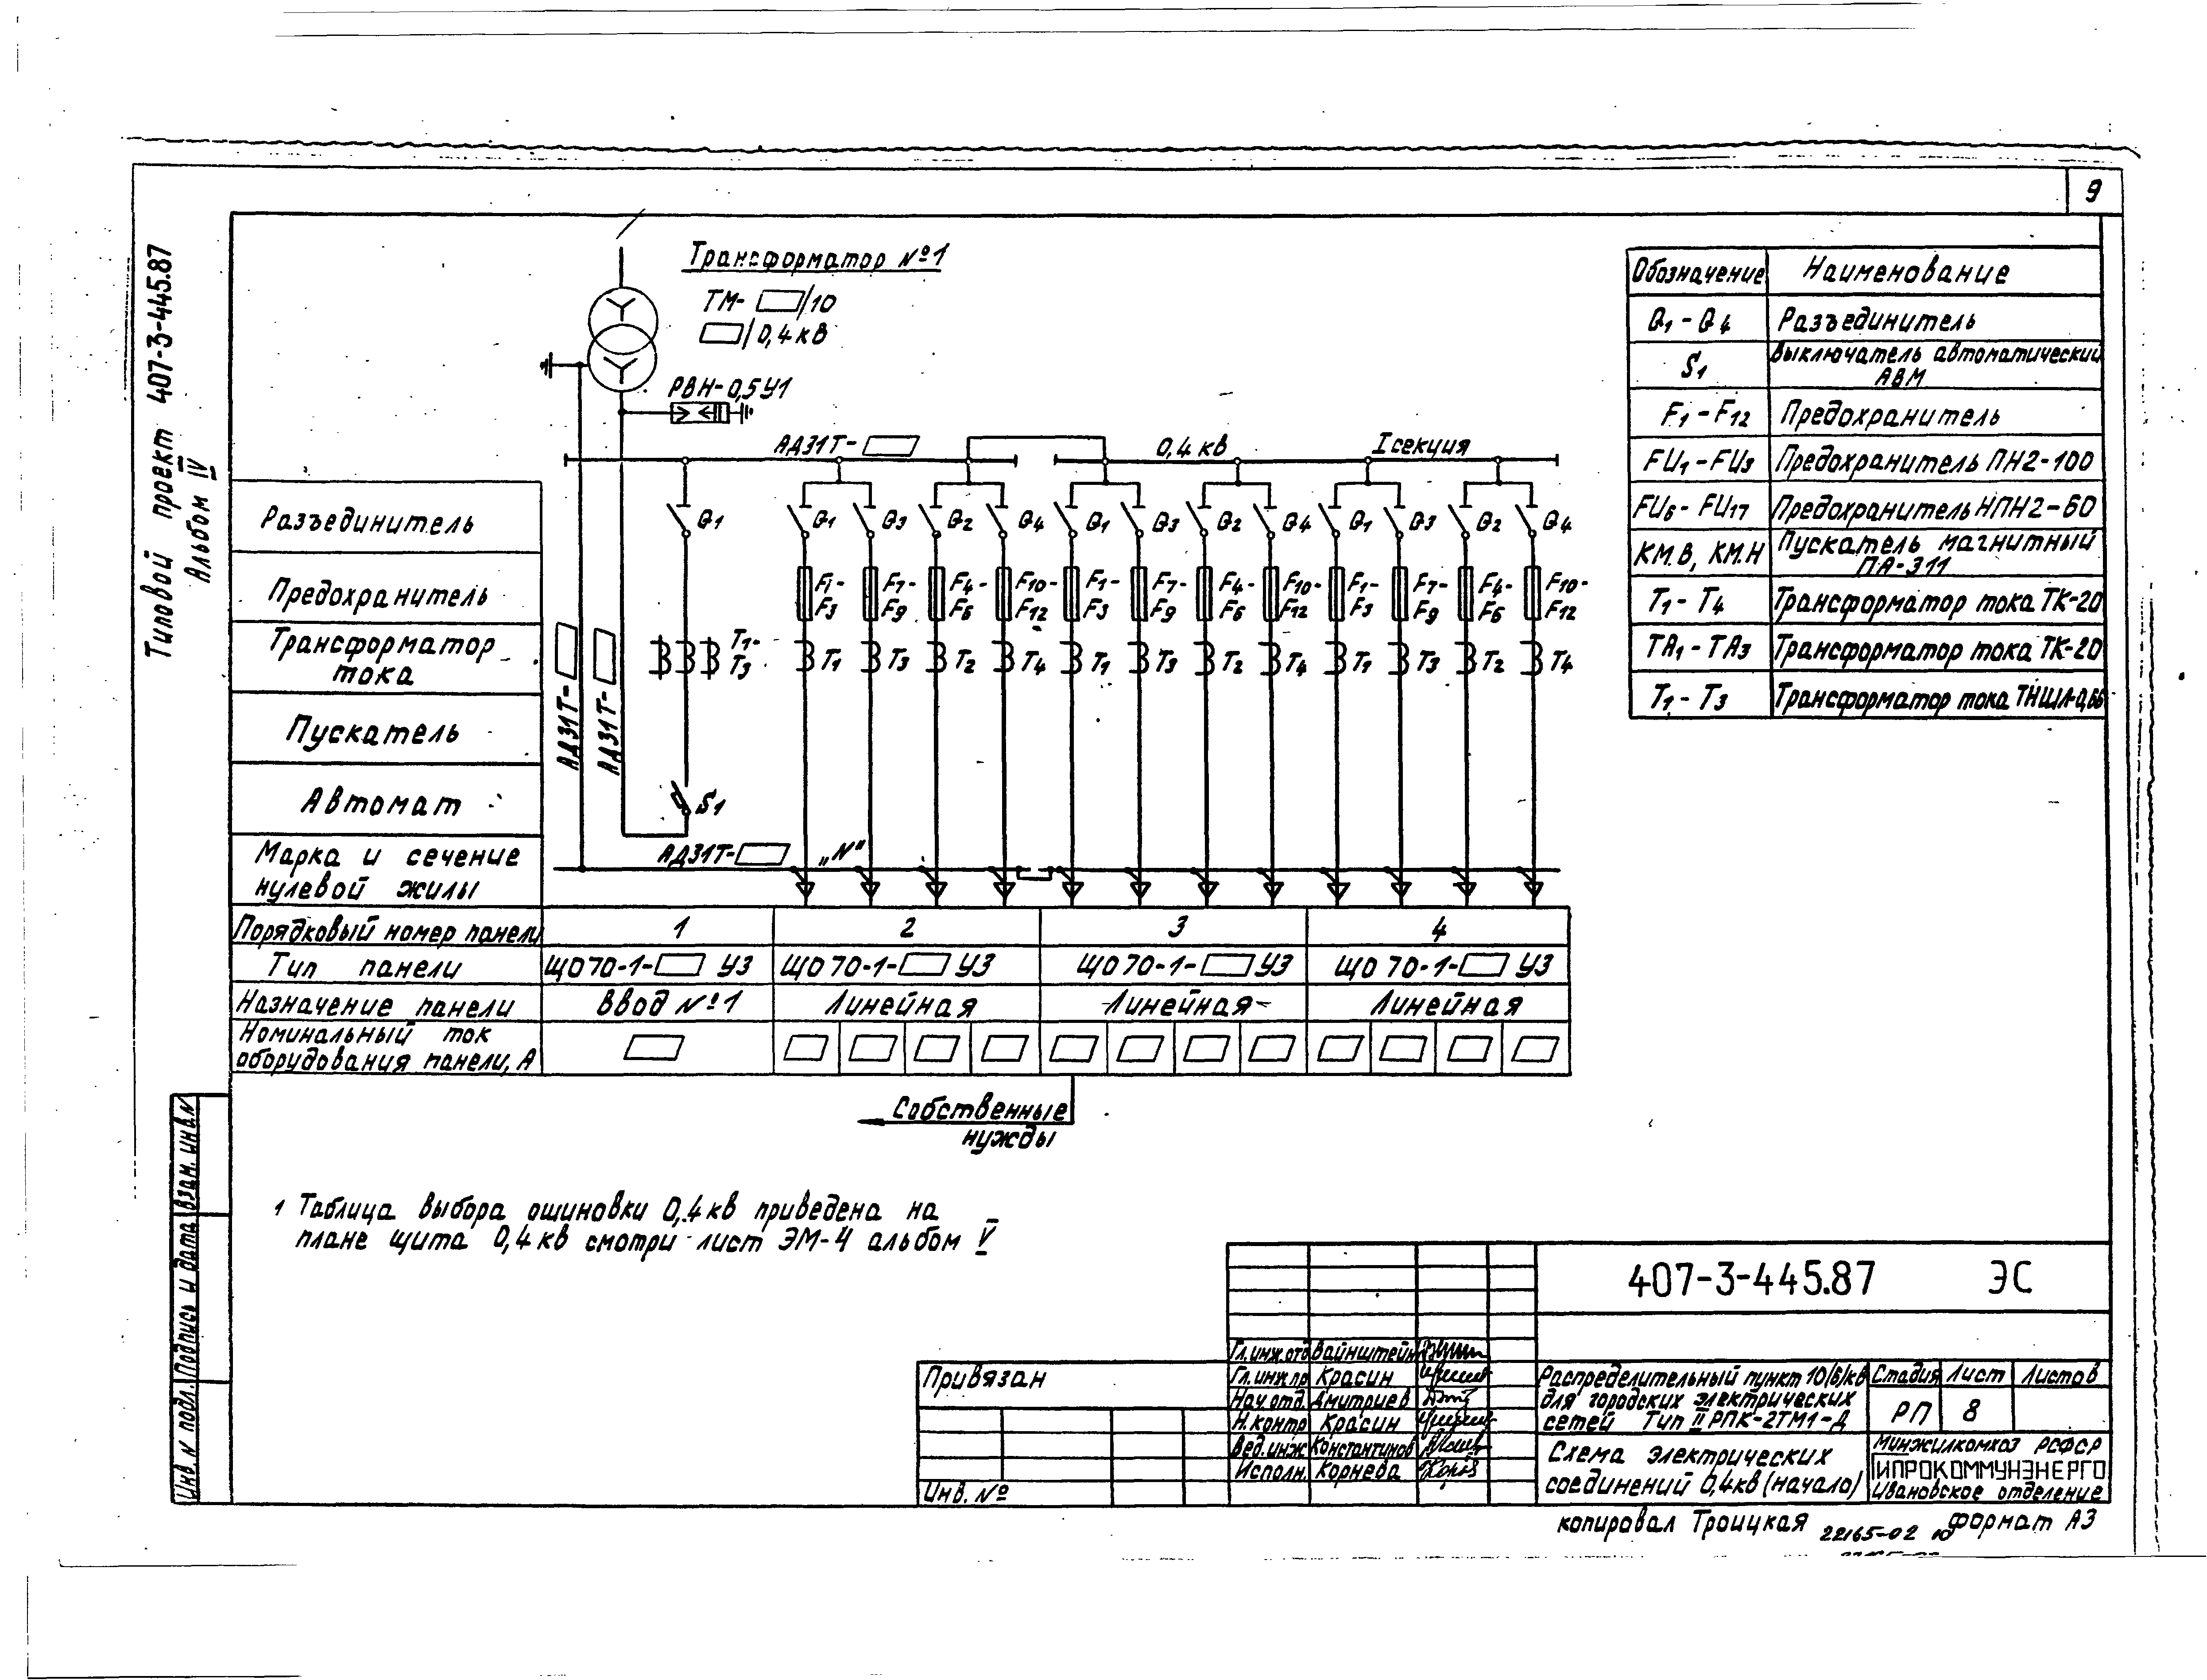 9
Типовой проект 407-3-445.87
Альбом IV
Трансформатор №1
ТМ- /10
/0,4кв
РВН-0,5У1
АД31Т-
0,4 кв
I секция
Разъединитель
Q1 Q1 Q3 Q2 Q4 Q1 Q3 Q2 Q4 Q1 Q3 Q2 Q4
Предохранитель
F1- F7- F4- F10- F1- F7- F4- F10- F1- F7- F4- F10-
F3 F9 F6 F12 F3 F9 F6 F12 F3 F9 F6 F12
Трансформатор
тока
Т1-
Т3
Т1 Т3 Т2 Т4 Т1 Т3 Т2 Т4 Т1 Т3 Т2 Т4
АД31Т-
АД31Т-
Пускатель
Автомат
S1
Марка и сечение
нулевой жилы
АД31Т- „N"
Порядковый номер панели 1 2 3 4
Тип панели ЩО70-1- У3 ЩО70-1- У3 ЩО70-1- У3 ЩО70-1- У3
Назначение панели Ввод №1 Линейная Линейная Линейная
Номинальный ток
оборудования панели, А
Собственные
нужды
Обозначение Наименование
Q1-Q4 Разъединитель
S1 Выключатель автоматический
АВМ
F1-F12 Предохранитель
FU1-FU3 Предохранитель ПН2-100
FU6-FU17 Предохранитель НПН2-60
КМ.В, КМ.Н Пускатель магнитный
ПА-311
Т1-Т4 Трансформатор тока ТК-20
ТА1-ТА3 Трансформатор тока ТК-20
Т1-Т3 Трансформатор тока ТНШЛ-0,66
1 Таблица выбора ошиновки 0,4 кв приведена на
плане щита 0,4 кв смотри лист ЭМ-4 альбом V
Взам. инв. N
Подпись и дата
Инв. N подл.
407-3-445.87 ЭС
Привязан
Инв. №
Гл.инж.отд Вайнштейн
Гл.инж.пр Красин
Нач.отд. Дмитриев
Н.контр Красин
Вед.инж Константинов
Исполн. Корнева
Распределительный пункт 10(6)кв
для городских электрических
сетей Тип II РПК-2ТМ1-Д
Стадия Лист Листов
РП 8
Схема электрических
соединений 0,4кв (начало)
Минжилкомхоз РСФСР
ГИПРОКОММУНЭНЕРГО
Ивановское отделение
копировал Троицкая 22165-02 10 формат А3